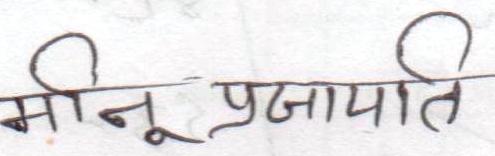 मीनू प्रजापति